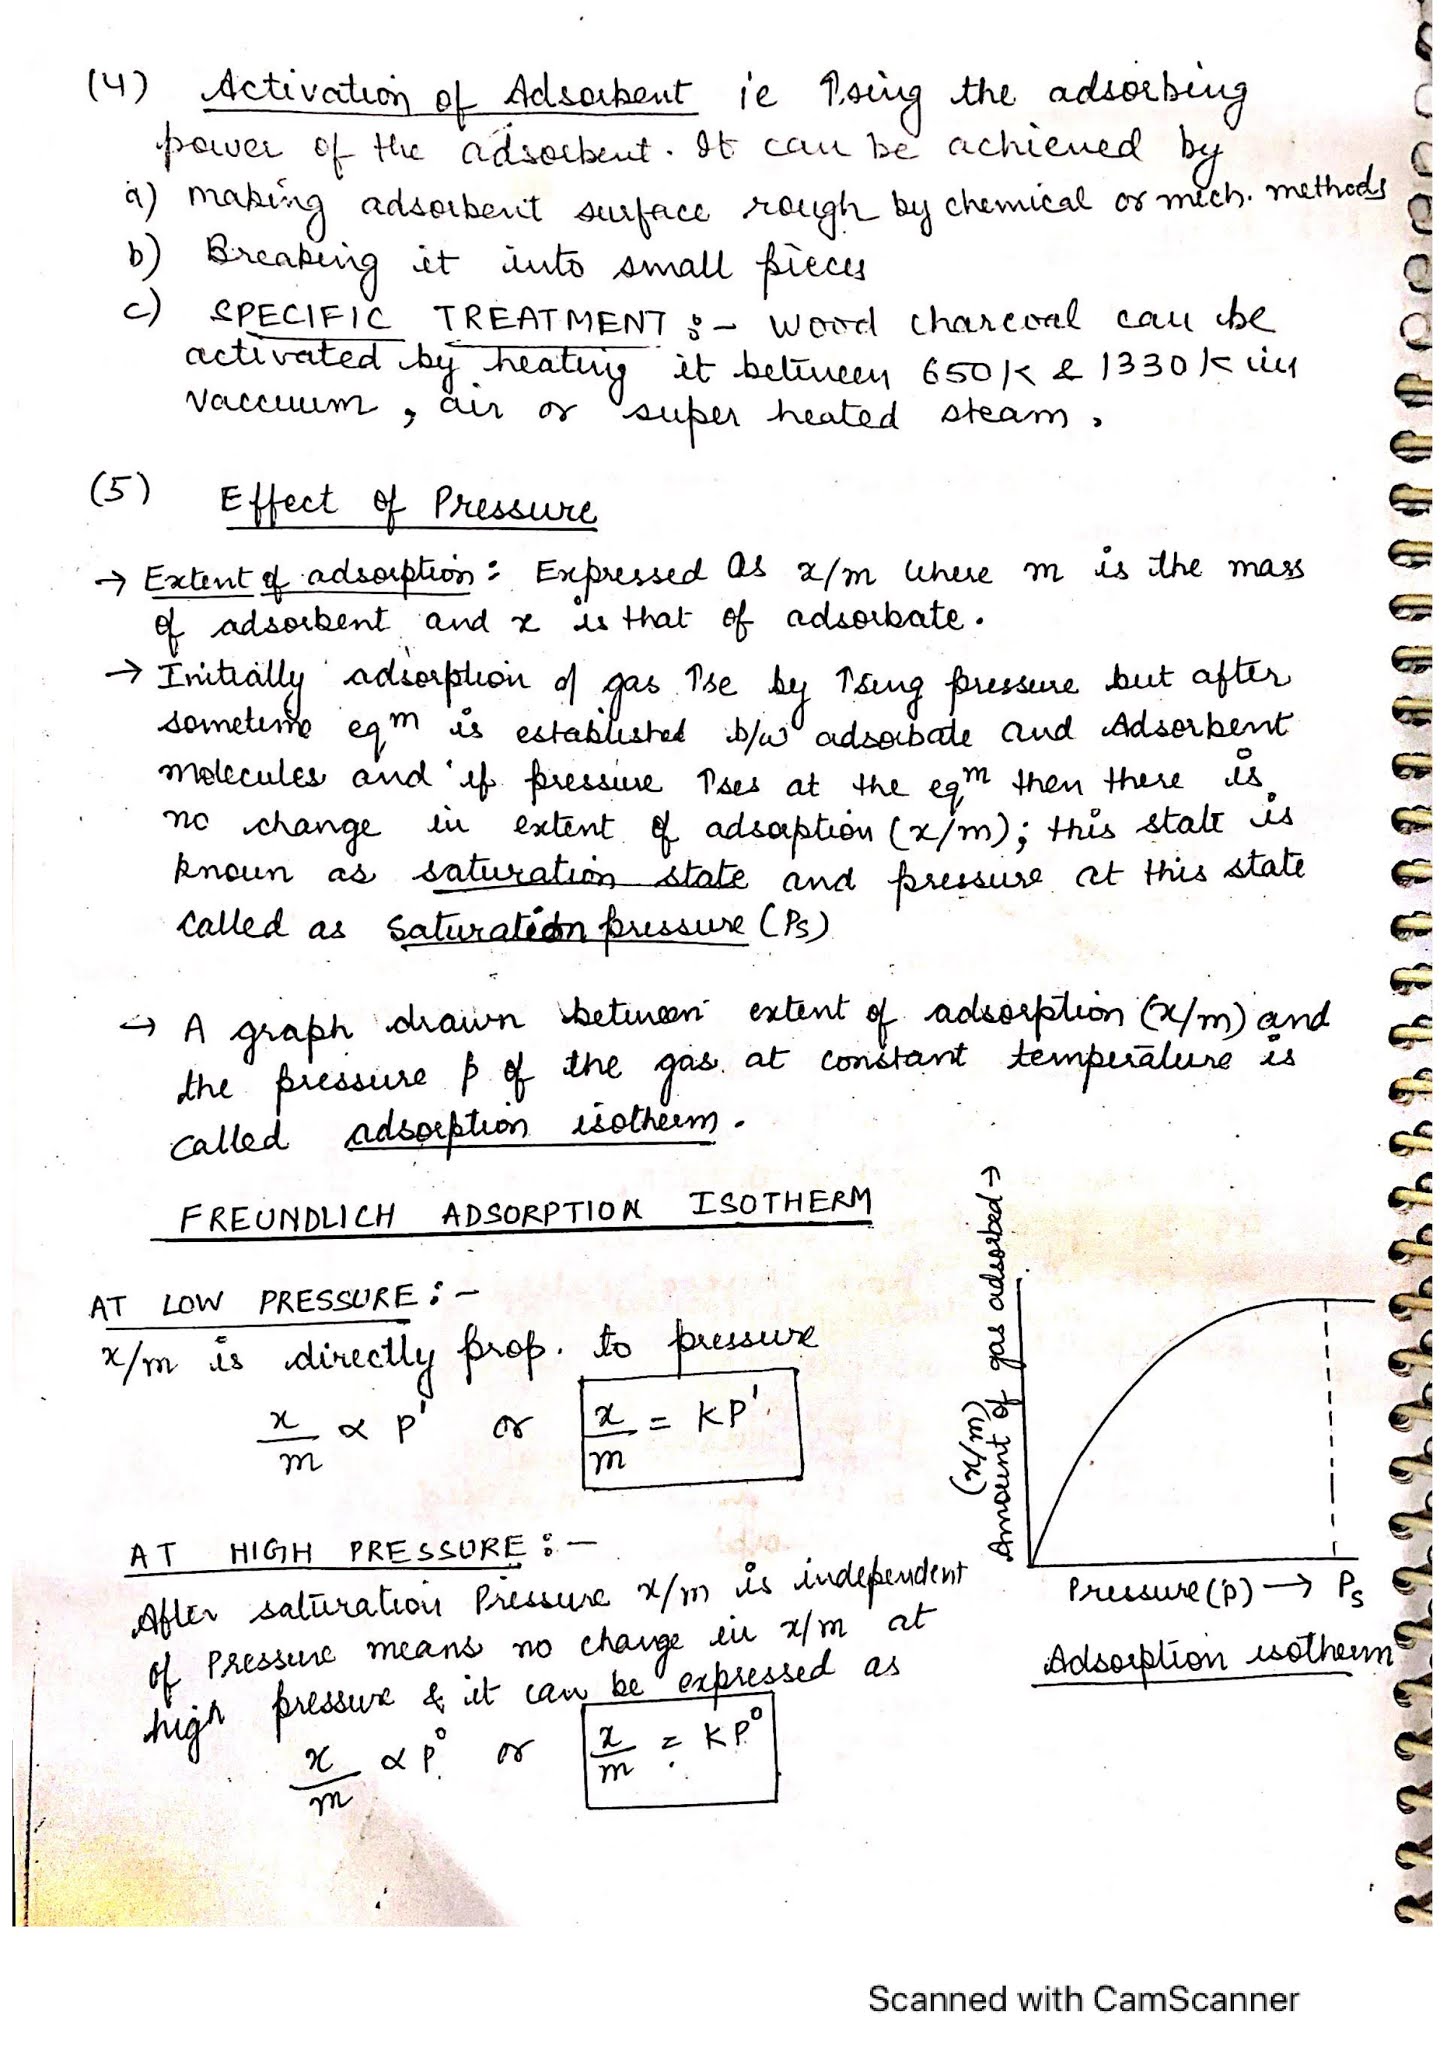 (4) Activation of Adsorbent ie ↑sing the adsorbing
power of the adsorbent. It can be achieved by
a) making adsorbent surface rough by chemical or mech. methods
b) Breaking it into small pieces
c) SPECIFIC TREATMENT :- Wood charcoal can be
activated by heating it between 650K & 1330K in
vaccuum, air or super heated steam.
(5) Effect of Pressure
→ Extent of adsorption: Expressed as x/m where m is the mass
of adsorbent and x is that of adsorbate.
→ Initially adsorption of gas ↑se by ↑sing pressure but after
sometime eqᵐ is established b/w adsorbate and Adsorbent
molecules and if pressure ↑ses at the eqᵐ then there is
no change in extent of adsorption (x/m); this state is
known as saturation state and pressure at this state
called as saturation pressure (Ps)
→ A graph drawn between extent of adsorption (x/m) and
the pressure p of the gas at constant temperature is
called adsorption isotherm.
FREUNDLICH ADSORPTION ISOTHERM
AT LOW PRESSURE :-
x/m is directly prop. to pressure
x/m ∝ P¹ or x/m = KP¹
AT HIGH PRESSURE :-
After saturation Pressure x/m is independent
of Pressure means no change in x/m at
high pressure & it can be expressed as
x/m ∝ P⁰ or x/m = KP⁰
(x/m)
Amount of gas adsorbed →
Pressure (p) → Ps
Adsorption isotherm
Scanned with CamScanner